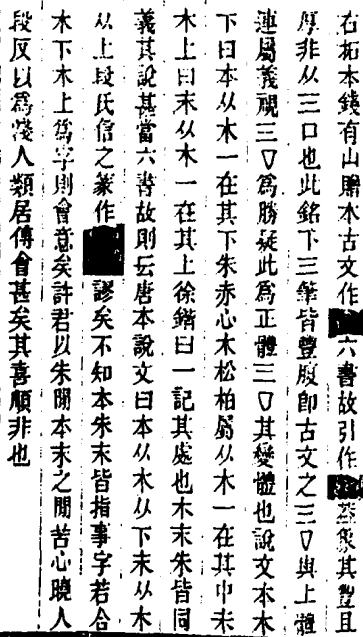 右柘本錢有山贈本古文作六書故引作蓋象其豐且
厚非从三口也此銘下三筆皆豐腹卽古文之三▽與上體
連屬義視三▽爲勝疑此爲正體三▽其變體也說文本木
下曰本从木一在其下朱赤心木松柏屬从木一在其中末
木上曰末从木一在其上徐鍇曰一記其處也本末朱皆同
義其說甚當六書故則云唐本說文曰本从木从下末从木
从上段氏信之篆作謬矣不知本朱末皆指事字若合
木下木上爲字則會意矣許君以朱閒本末之閒苦心曉人
段反以爲淺人類居傅會甚矣其喜顚非也